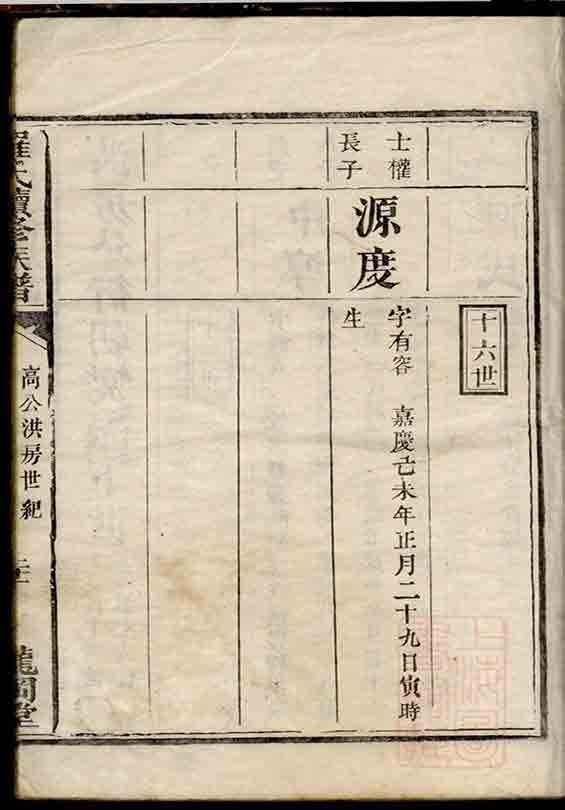 十六世
士權
長子
源度
字有容 嘉慶己未年正月二十九日寅時
生
羅氏續修族譜
高公洪房世紀